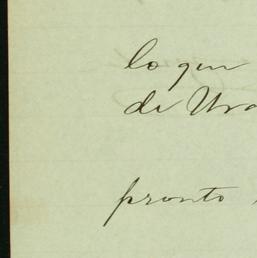 lo que
de Ura
pronto